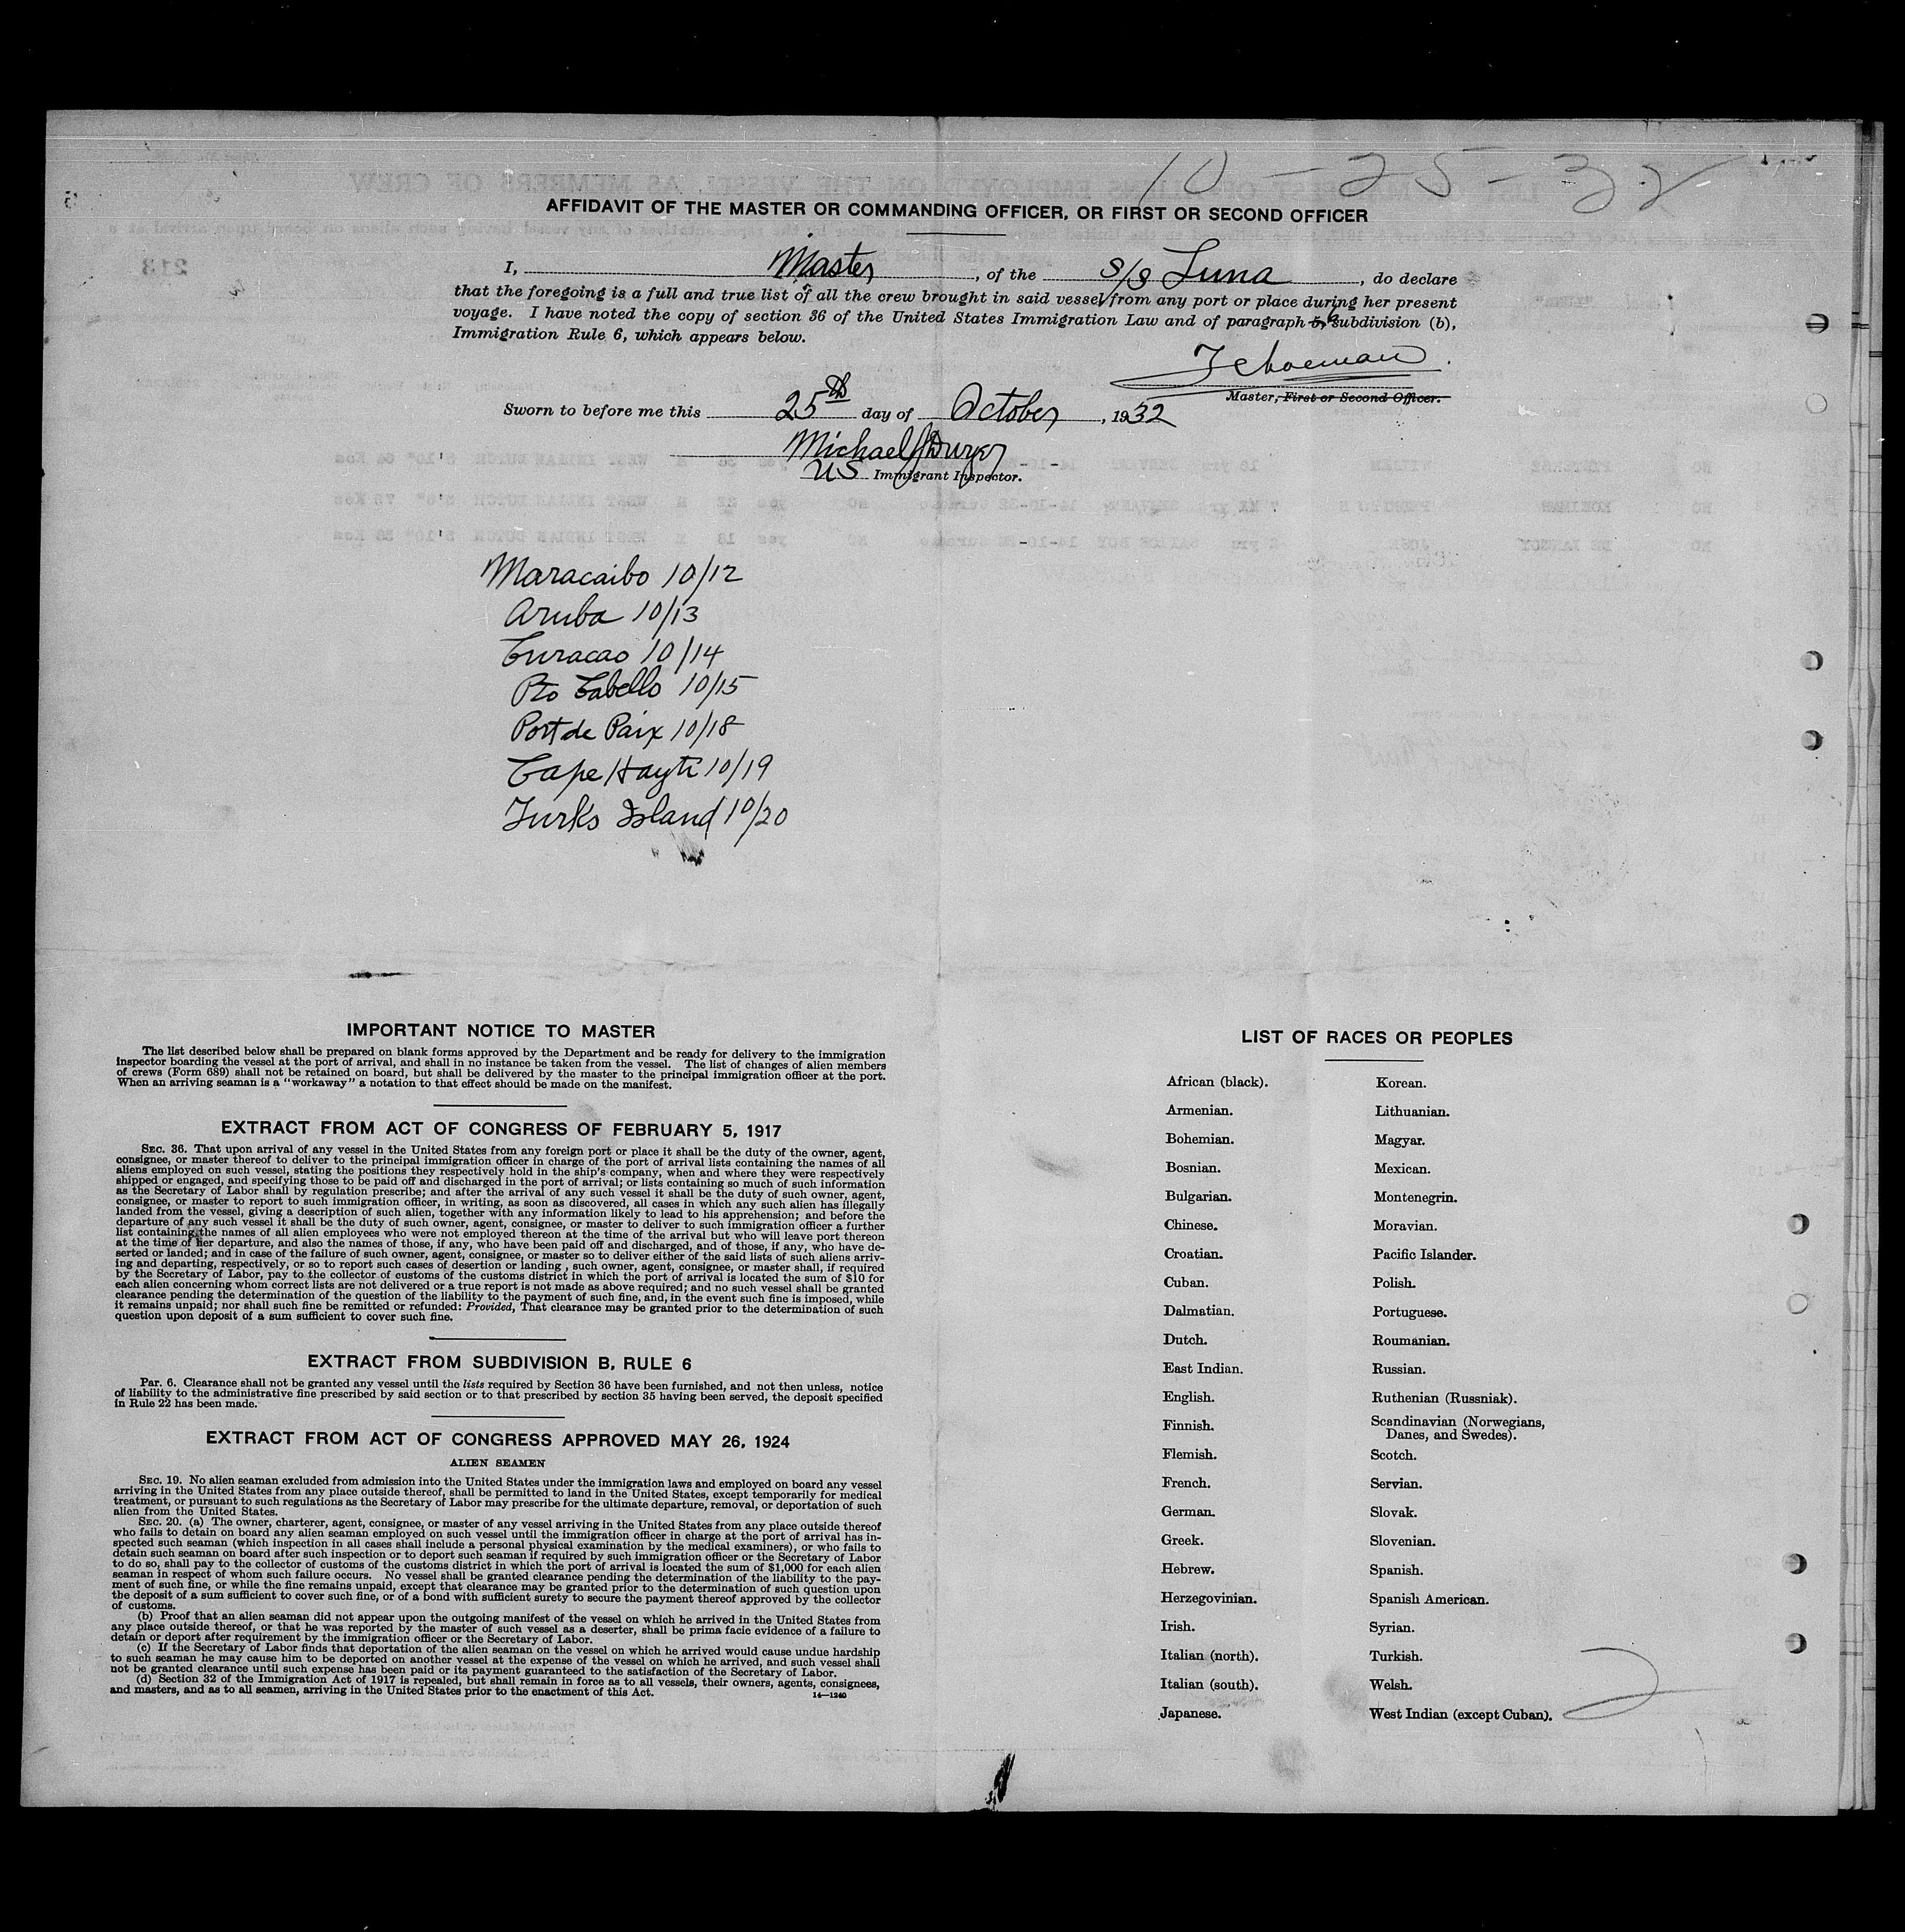 10-25-32
AFFIDAVIT OF THE MASTER OR COMMANDING OFFICER, OR FIRST OR SECOND OFFICER
I, Master, of the S/S Luna, do declare
that the foregoing is a full and true list of all the crew brought in said vessel from any port or place during her present
voyage. I have noted the copy of section 36 of the United States Immigration Law and of paragraph 5, 6 subdivision (b),
Immigration Rule 6, which appears below.
Master, First or Second Officer.
Sworn to before me this 25th day of October, 1932
Michael J
US Immigrant Inspector.
Maracaibo 10/12
Aruba 10/13
Curacao 10/14
Pto Cabello 10/15
Port de Paix 10/18
Cape Hayti 10/19
Turks Island 10/20
IMPORTANT NOTICE TO MASTER
The list described below shall be prepared on blank forms approved by the Department and be ready for delivery to the immigration
inspector boarding the vessel at the port of arrival, and shall in no instance be taken from the vessel. The list of changes of alien members
of crews (Form 689) shall not be retained on board, but shall be delivered by the master to the principal immigration officer at the port.
When an arriving seaman is a "workaway" a notation to that effect should be made on the manifest.
EXTRACT FROM ACT OF CONGRESS OF FEBRUARY 5, 1917
SEC. 36. That upon arrival of any vessel in the United States from any foreign port or place it shall be the duty of the owner, agent,
consignee, or master thereof to deliver to the principal immigration officer in charge of the port of arrival lists containing the names of all
aliens employed on such vessel, stating the positions they respectively hold in the ship's company, when and where they were respectively
shipped or engaged, and specifying those to be paid off and discharged in the port of arrival; or lists containing so much of such information
as the Secretary of Labor shall by regulation prescribe; and after the arrival of any such vessel it shall be the duty of such owner, agent,
consignee, or master to report to such immigration officer, in writing, as soon as discovered, all cases in which any such alien has illegally
landed from the vessel, giving a description of such alien, together with any information likely to lead to his apprehension; and before the
departure of any such vessel it shall be the duty of such owner, agent, consignee, or master to deliver to such immigration officer a further
list containing the names of all alien employees who were not employed thereon at the time of the arrival but who will leave port thereon
at the time of her departure, and also the names of those, if any, who have been paid off and discharged, and of those, if any, who have de-
serted or landed; and in case of the failure of such owner, agent, consignee, or master so to deliver either of the said lists of such aliens arriv-
ing and departing, respectively, or so to report such cases of desertion or landing , such owner, agent, consignee, or master shall, if required
by the Secretary of Labor, pay to the collector of customs of the customs district in which the port of arrival is located the sum of $10 for
each alien concerning whom correct lists are not delivered or a true report is not made as above required; and no such vessel shall be granted
clearance pending the determination of the question of the liability to the payment of such fine, and, in the event such fine is imposed, while
it remains unpaid; nor shall such fine be remitted or refunded: Provided, That clearance may be granted prior to the determination of such
question upon deposit of a sum sufficient to cover such fine.
EXTRACT FROM SUBDIVISION B, RULE 6
Par. 6. Clearance shall not be granted any vessel until the lists required by Section 36 have been furnished, and not then unless, notice
of liability to the administrative fine prescribed by said section or to that prescribed by section 35 having been served, the deposit specified
in Rule 22 has been made.
EXTRACT FROM ACT OF CONGRESS APPROVED MAY 26, 1924
ALIEN SEAMEN
SEC. 19. No alien seaman excluded from admission into the United States under the immigration laws and employed on board any vessel
arriving in the United States from any place outside thereof, shall be permitted to land in the United States, except temporarily for medical
treatment, or pursuant to such regulations as the Secretary of Labor may prescribe for the ultimate departure, removal, or deportation of such
alien from the United States.
SEC. 20. (a) The owner, charterer, agent, consignee, or master of any vessel arriving in the United States from any place outside thereof
who fails to detain on board any alien seaman employed on such vessel until the immigration officer in charge at the port of arrival has in-
spected such seaman (which inspection in all cases shall include a personal physical examination by the medical examiners), or who fails to
detain such seaman on board after such inspection or to deport such seaman if required by such immigration officer or the Secretary of Labor
to do so, shall pay to the collector of customs of the customs district in which the port of arrival is located the sum of $1,000 for each alien
seaman in respect of whom such failure occurs. No vessel shall be granted clearance pending the determination of the liability to the pay-
ment of such fine, or while the fine remains unpaid, except that clearance may be granted prior to the determination of such question upon
the deposit of a sum sufficient to cover such fine, or of a bond with sufficient surety to secure the payment thereof approved by the collector
of customs.
(b) Proof that an alien seaman did not appear upon the outgoing manifest of the vessel on which he arrived in the United States from
any place outside thereof, or that he was reported by the master of such vessel as a deserter, shall be prima facie evidence of a failure to
detain or deport after requirement by the immigration officer or the Secretary of Labor.
(c) If the Secretary of Labor finds that deportation of the alien seaman on the vessel on which he arrived would cause undue hardship
to such seaman he may cause him to be deported on another vessel at the expense of the vessel on which he arrived, and such vessel shall
not be granted clearance until such expense has been paid or its payment guaranteed to the satisfaction of the Secretary of Labor.
(d) Section 32 of the Immigration Act of 1917 is repealed, but shall remain in force as to all vessels, their owners, agents, consignees,
and masters, and as to all seamen, arriving in the United States prior to the enactment of this Act.
14—1240
LIST OF RACES OR PEOPLES
African (black).
Armenian.
Bohemian.
Bosnian.
Bulgarian.
Chinese.
Croatian.
Cuban.
Dalmatian.
Dutch.
East Indian.
English.
Finnish.
Flemish.
French.
German.
Greek.
Hebrew.
Herzegovinian.
Irish.
Italian (north).
Italian (south).
Japanese.
Korean.
Lithuanian.
Magyar.
Mexican.
Montenegrin.
Moravian.
Pacific Islander.
Polish.
Portuguese.
Roumanian.
Russian.
Ruthenian (Russniak).
Scandinavian (Norwegians,
Danes, and Swedes).
Scotch.
Servian.
Slovak.
Slovenian.
Spanish.
Spanish American.
Syrian.
Turkish.
Welsh.
West Indian (except Cuban).